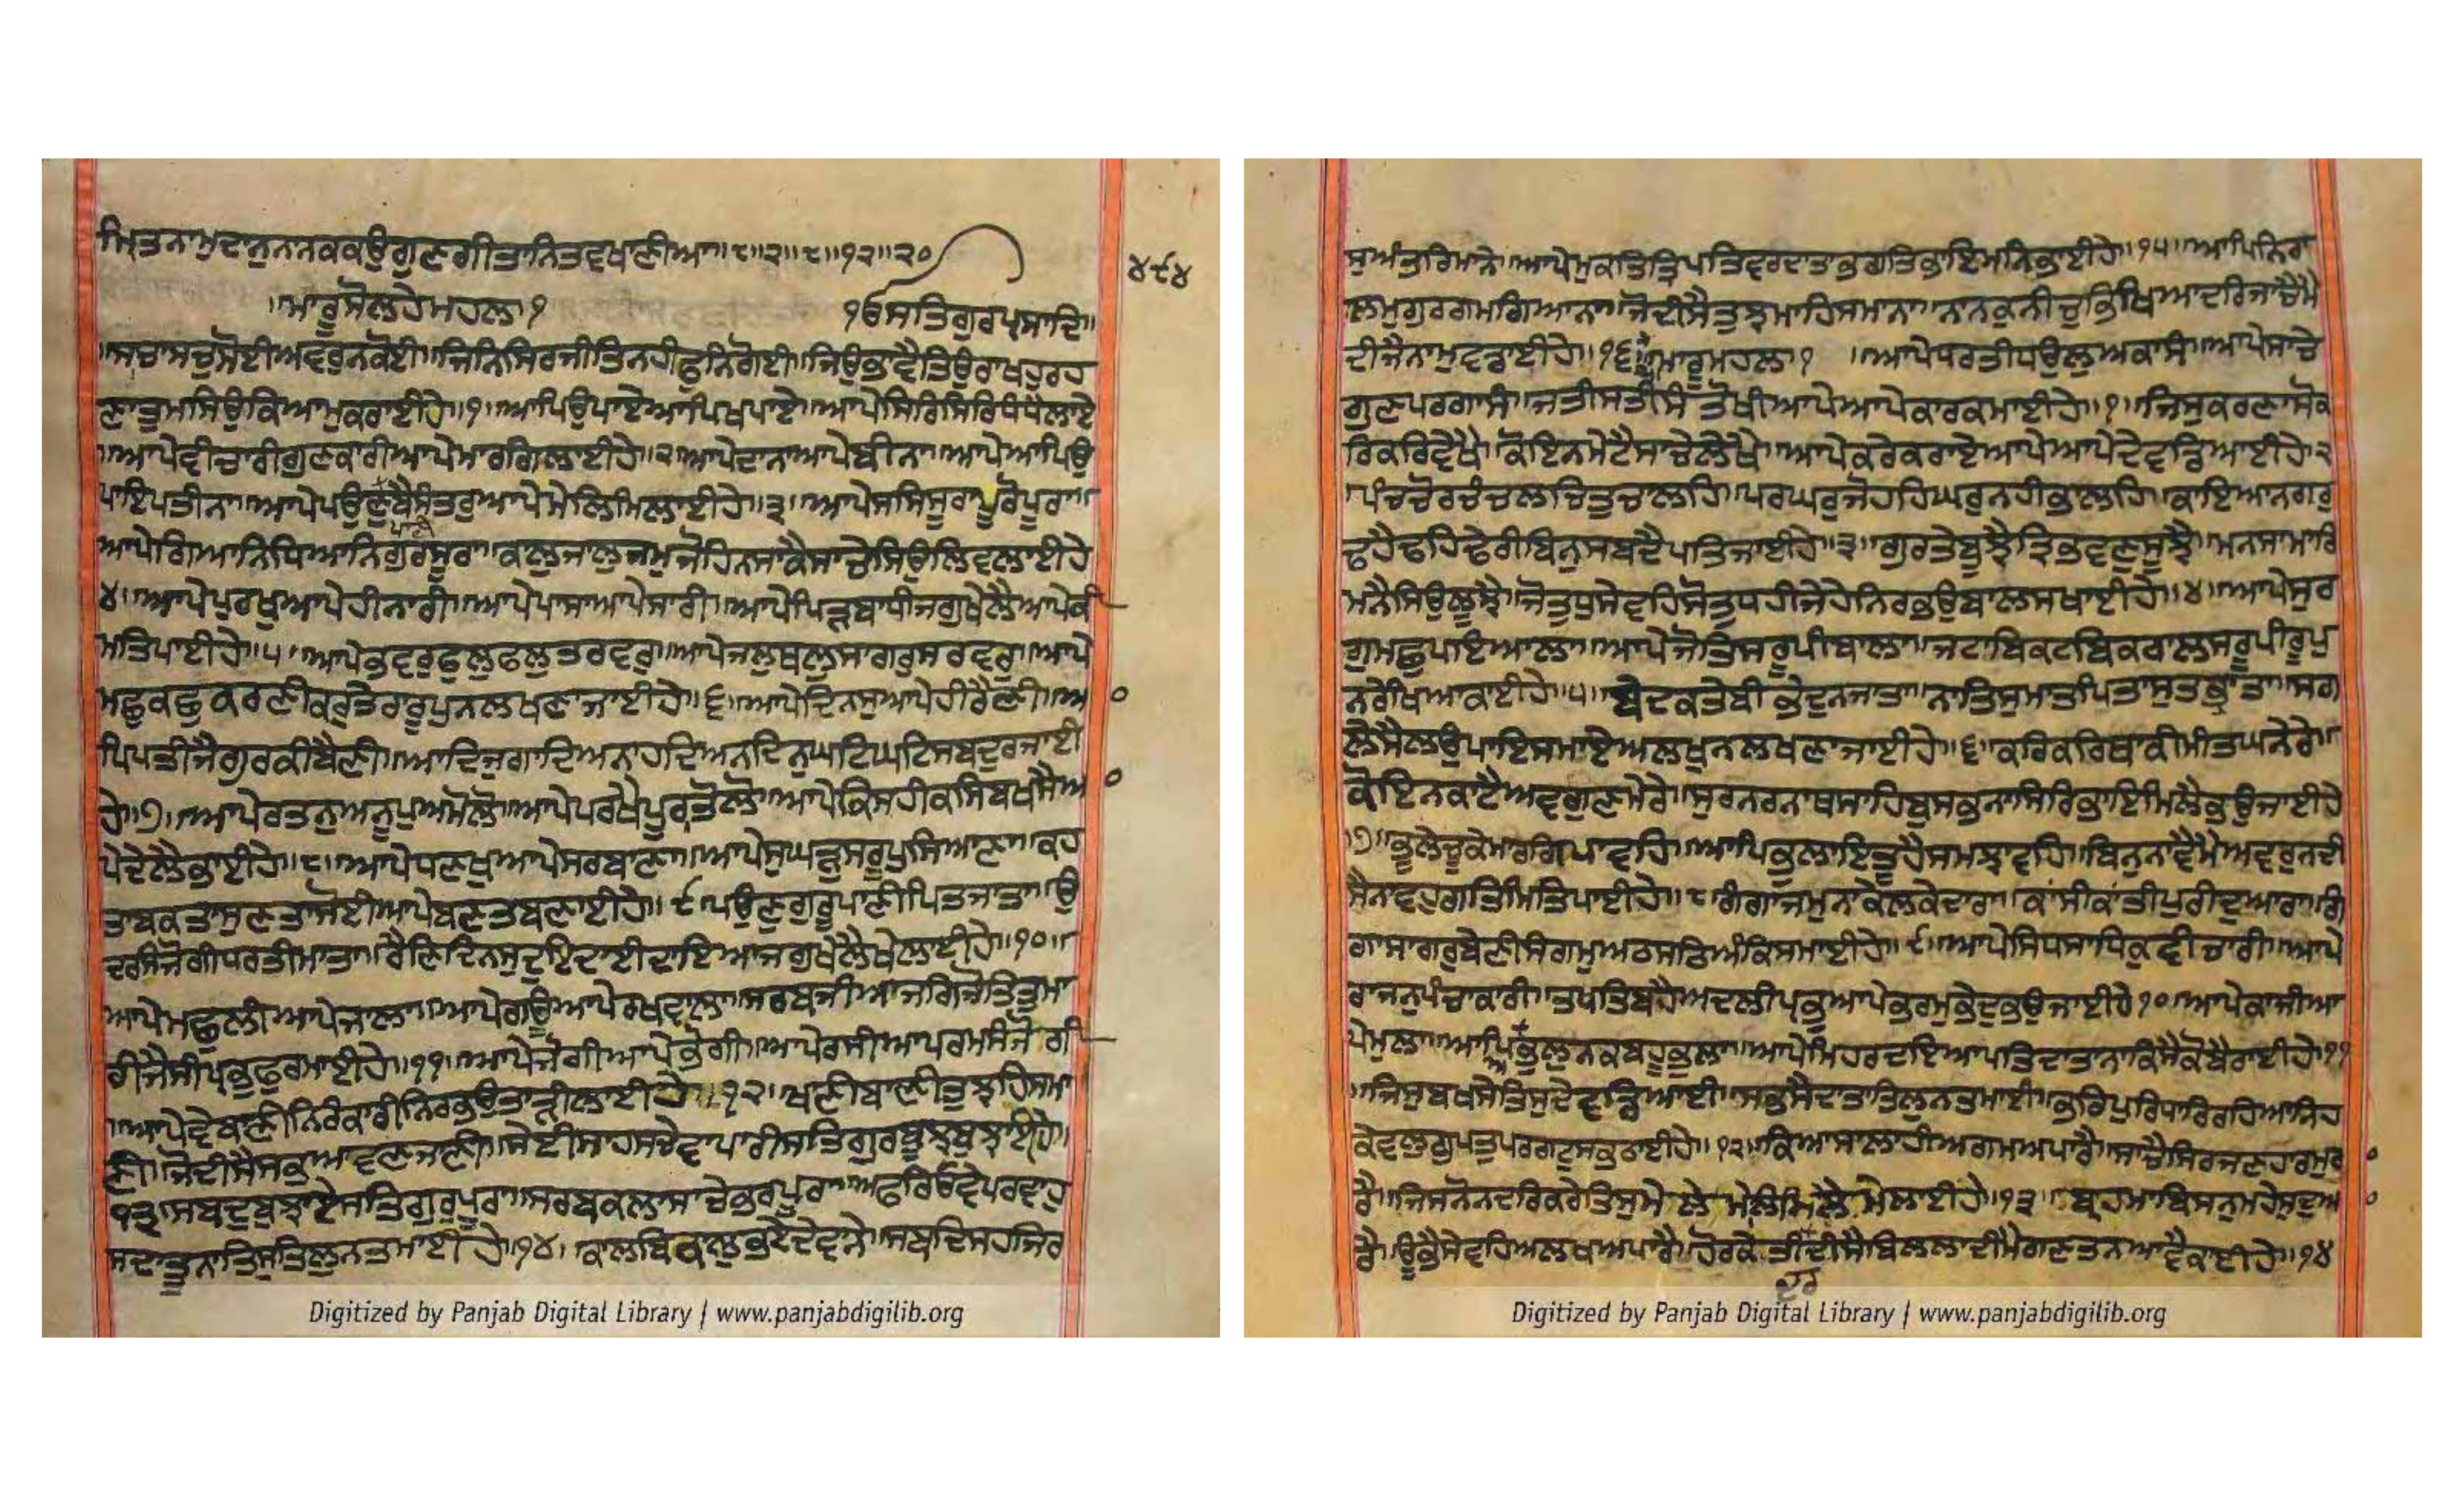 ਮ੍ਰਿਤਨਾਮੁਦਾਨੁਨਾਨਕਕਉਗੁਣਗੀਤਾਨਿਤਵਖਾਣੀਆ॥੮॥੨॥੮॥੧੨॥੨੦
੪੯੪
॥ਮਾਰੂਸੋਲਹੇਮਹਲਾ੧ ੴਸਤਿਗੁਰਪ੍ਰਸਾਦਿ॥
॥ਸਾਚਾਸਚੁਸੋਈਅਵਰੁਨਕੋਈ॥ਜਿਨਿਸਿਰਜੀਤਿਨਹੀਫੁਨਿਗੋਈ॥ਜਿਉਭਾਵੈਤਿਉਰਾਖਹੁਰਹ
ਣਾਤੁਮਸਿਉਕਿਆਮੁਕਰਾਈਹੇ॥੧॥ਆਪਿਉਪਾਏਆਪਿਖਪਾਏ॥ਆਪੇਸਿਰਿਸਿਰਿਧੰਧੈਲਾਏ
॥ਆਪੇਵੀਚਾਰੀਗੁਣਕਾਰੀਆਪੇਮਾਰਗਿਲਾਈਹੇ॥੨ਆਪੇਦਾਨਾਆਪੇਬੀਨਾ॥ਆਪੇਆਪਿਉ
ਪਾਇਪਤੀਨਾ॥ਆਪੇਪਉਣੁਬੈਸੰਤਰੁਆਪੇਮੇਲਿਮਿਲਾਈਹੇ॥੩॥ਆਪੇਸਸਿਸੂਰਪੂਰੋਪੂਰਾ॥
ਆਪੇਗਿਆਨਿਧਿਆਨਿਗੁਰਸੂਰਾ॥ਕਲੁਜਾਲੁਜਮੁਜੋਹਿਨਸਾਕੈਸਾਚੇਸਿਉਲਿਵਲਾਈਹੇ
੪॥ਆਪੇਪੁਰਖੁਆਪੇਹੀਨਾਰੀ॥ਆਪੇਪਾਸਾਆਪੇਸਾਰੀ॥ਆਪੇਪਿੜਬਾਧੀਜਗੁਖੇਲੈਆਪੇਕੀ
ਮਤਿਪਾਈਹੇ॥੫॥ਆਪੇਭਵਰੁਫੁਲੁਫਲੁਤਰਵਰੁ॥ਆਪੇਜਲੁਥਲੁਸਾਗਰੁਸਰਵਰੁ॥ਆਪੇ
ਮਛੁਕਛੁਕਰਣੀਕਰੁਤੇਰਾਰੂਪੁਨਲਖਣਾਜਾਈਹੇ॥੬॥ਆਪੇਦਿਨਸੁਆਪੇਹੀਰੈਣੀ॥ਆ
ਪਿਪਤੀਜੈਗੁਰਕੀਬੈਣੀ॥ਆਦਿਜੁਗਾਦਿਅਨਾਹਦਿਅਨਦਿਨੁਘਟਿਘਟਿਸਬਦੁਰਜਾਈ
ਹੇ॥੭॥ਆਪੇਰਤਨੁਅਨੂਪੁਅਮੋਲੋ॥ਆਪੇਪਰਖੇਪੂਰਾਤੋਲੋ॥ਆਪੇਕਿਸਹੀਕਸਿਬਖਸੇਆ
ਪੇਦੇਲੈਭਾਈਹੇ॥੮॥ਆਪੇਧਣਖੁਆਪੇਸਰਬਾਣਾ॥ਆਪੇਸੁਘੜੁਸਰੂਪੁਸਿਆਣਾ॥ਕਹ
ਤਾਬਕਤਾਸੁਣਤਾਸੋਈਆਪੇਬਣਤਬਣਾਈਹੇ॥੯॥ਪਉਣੁਗੁਰੂਪਾਣੀਪਿਤਜਾਤਾ॥ਉ
ਦਰਸੰਜੋਗੀਧਰਤੀਮਾਤਾ॥ਰੈਣਿਦਿਨਸੁਦੁਇਦਾਈਦਾਇਆਜਗੁਖੇਲੈਖੇਲਾਈਹੇ॥੧੦॥
ਆਪੇਮਛੁਲੀਆਪੇਜਾਲਾ॥ਆਪੇਗਊਆਪੇਰਖਵਾਲਾ॥ਸਰਬਜੀਆਜਗਿਜੋਤਿਤੁਮਾ
ਰੀਜੈਸੀਪ੍ਰਭੁਫੁਰਮਾਈਹੇ॥੧੧॥ਆਪੇਜੋਗੀਆਪੇਭੋਗੀ॥ਆਪੇਰਸੀਆਪਰਮਸੰਜੋਗੀ
॥ਆਪੇਵੇਬਾਣੀਨਿਰੰਕਾਰੀਨਿਰਭਉਤਾੜੀਲਾਈਹੇ॥੧੨॥ਖਾਣੀਬਾਣੀਤੁਝਹਿਸਮਾ
ਣੀ॥ਜੋਦੀਸੈਸਭਆਵਣਜਾਣੀ॥ਸੇਈਸਾਹਸਚੇਵਾਪਾਰੀਸਤਿਗੁਰਬੂਝਬੁਝਾਇਹੇ॥
੧੩॥ਸਬਦੁਬੁਝਾਏਸਤਿਗੁਰਪੂਰਾ॥ਸਰਬਕਲਾਸਾਚੇਭਰਪੂਰਾ॥ਅਫਰਿਓਵੇਪਰਵਾਹੁ
ਸਦਾਤੂਨਾਤਿਸੁਤਿਲੁਨਤਮਾਈਹੇ॥੧੪॥ਕਾਲਬਿਕਾਲੁਭਏਦੇਵਾਨੇ॥ਸਬਦਿਸਹਜਿਰ
ਸੁਅੰਤਰਿਮਾਨੇ॥ਆਪੇਮੁਕਤਿਤ੍ਰਿਪਤਿਵਰਦਾਤਾਭਗਤਿਭਾਇਮਨਿਭਾਈਹੇ॥੧੫॥ਆਪਿਨਿਰਾ
ਲਮੁਗੁਰਗਮਗਿਆਨਾ॥ਜੋਦੀਸੈਤੁਝਮਾਹਿਸਮਾਨਾ॥ਨਾਨਕੁਨੀਚੁਭਿਖਿਆਦਰਿਜਾਚੈਮੈ
ਦੀਜੈਨਾਮੁਵਡਾਈਹੇ॥੧੬॥ਮਾਰੂਮਹਲਾ੧ ॥ਆਪੇਧਰਤੀਧਉਲੁਅਕਾਸੰ॥ਆਪੇਸਾਚੇ
ਗੁਣਪਰਗਾਸੰ॥ਜਤੀਸਤੀਸੰਤੋਖੀਆਪੇਆਪੇਕਾਰਕਮਾਈਹੇ॥੧॥ਜਿਸੁਕਰਣਾਸੋਕ
ਰਿਕਰਿਵੇਖੈ॥ਕੋਇਨਮੇਟੈਸਾਚੇਲੇਖੇ॥ਆਪੇਕਰੇਕਰਾਏਆਪੇਆਪੇਦੇਵਡਿਆਈਹੇ੨
॥ਪੰਚਚੋਰਚੰਚਲਚਿਤੁਚਾਲਹਿ॥ਪਰਘਰੁਜੋਹਹਿਘਰੁਨਹੀਭਾਲਹਿ॥ਕਾਇਆਨਗਰੁ
ਢਹੈਢਹਿਢੇਰੀਬਿਨੁਸਬਦੈਪਤਿਜਾਈਹੇ॥੩॥ਗੁਰਤੇਬੂਝੈਤ੍ਰਿਭਵਣੁਸੂਝੈ॥ਮਨਸਾਮਾਰਿ
ਮਨੈਸਿਉਲੂਝੈ॥ਜੋਤੁਧੁਸੇਵਹਿਸੇਤੁਧਹੀਜੇਹੇਨਿਰਭਉਬਾਲਸਖਾਈਹੇ॥੪॥ਆਪੇਸੁਰ
ਗੁਮਛੁਪਾਇਆਲਾ॥ਆਪੇਜੋਤਿਸਰੂਪੀਬਾਲਾ॥ਜਟਾਬਿਕਟਬਿਕਰਾਲਸਰੂਪੀਰੂਪੁ
ਨਰੇਖਿਆਕਾਈਹੇ॥੫॥ਬੇਦਕਤੇਬੀਭੇਦੁਨਜਾਤਾ॥ਨਾਤਿਸੁਮਾਤਪਿਤਾਸੁਤਭ੍ਰਾਤਾ॥ਸਗ
ਲੇਸੈਲਉਪਾਇਸਮਾਏਅਲਖੁਨਲਖਣਾਜਾਈਹੇ॥੬॥ਕਰਿਕਰਿਥਾਕੀਮੀਤਘਨੇਰੇ॥
ਕੋਇਨਕਾਟੈਅਵਗੁਣਮੇਰੇ॥ਸੁਰਨਰਨਾਥਸਾਹਿਬੁਸਭਨਾਸਿਰਿਭਾਇਮਿਲੈਭਉਜਾਈਹੇ
॥੭॥ਭੂਲੇਚੂਕੇਮਾਰਗਿਪਾਵਹਿ॥ਆਪਿਭੁਲਾਇਤੂਹੈਸਮਝਾਵਹਿ॥ਬਿਨੁਨਾਵੈਮੈਅਵਰੁਨਦੀ
ਸੈਨਾਵਹੁਗਤਿਮਿਤਿਪਾਈਹੇ॥੮॥ਗੰਗਾਜਮੁਨਾਕੇਲਕੇਦਾਰਾ॥ਕਾਸੀਕਾਂਤੀਪੁਰੀਦੁਆਰਾ॥ਗੰ
ਗਾਸਾਗਰੁਬੇਣੀਸੰਗਮੁਅਠਸਠਿਅੰਕਿਸਮਾਈਹੇ॥੯॥ਆਪੇਸਿਧਸਾਧਿਕੁਵੀਚਾਰੀ॥ਆਪੇ
ਰਾਜਨੁਪੰਚਾਕਾਰੀ॥ਤਖਤਿਬਹੈਅਦਲੀਪ੍ਰਭੁਆਪੇਭਰਮੁਭੇਦੁਭਉਜਾਈਹੇ੧੦॥ਆਪੇਕਾਜੀਆ
ਪੇਮੁਲਾ॥ਆਪਿਅਭੁਲੁਨਕਬਹੂਭੁਲਾ॥ਆਪੇਮਿਹਰਦਇਆਪਤਿਦਾਤਾਨਾਕਿਸੈਕੋਬੈਰਾਈਹੇ॥੧੧
॥ਜਿਸੁਬਖਸੇਤਿਸੁਦੇਵਡਿਆਈ॥ਸਭਸੈਦਾਤਾਤਿਲੁਨਤਮਾਈ॥ਭਰਿਪੁਰਿਧਾਰਿਰਹਿਆਨਿਹ
ਕੇਵਲੁਗੁਪਤੁਪਰਗਟੁਸਭਠਾਈਹੇ॥੧੨॥ਕਿਆਸਾਲਾਹੀਅਗਮਅਪਾਰੈ॥ਸਾਚੈਸਿਰਜਣਹਾਰਮੁਰਾ
ਰੈ॥ਜਿਸਨੋਨਦਰਿਕਰੇਤਿਸੁਮੇਲੇਮੇਲਿਮਿਲੈਮੇਲਾਈਹੇ॥੧੩॥ਬ੍ਰਹਮਾਬਿਸਨੁਮਹੇਸੁਦੁਆ
ਰੈ॥ਊਭੈਸੇਵਹਿਅਲਖਅਪਾਰੈ॥ਹੋਰਕੇਤੀਦੀਸੈਬਿਲਲਾਦੀਮੈਗਣਤਨਆਵੈਕਾਈਹੇ॥੧੪
ਦਰ
Digitized by Panjab Digital Library | www.panjabdigilib.org
Digitized by Panjab Digital Library | www.panjabdigilib.org